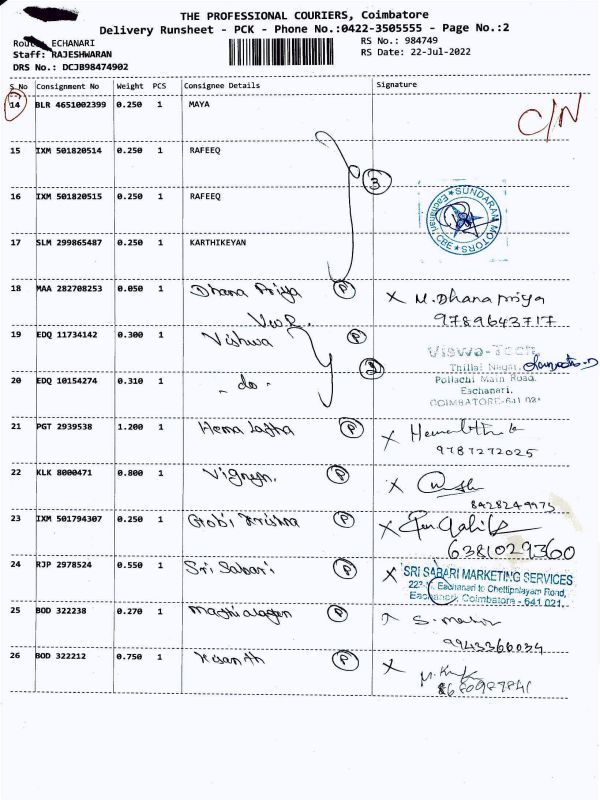 THE PROFESSIONAL COURIERS, Coimbatore
Delivery Runsheet - PCK - Phone No.:0422-3505555 - Page No.:2
Route: ECHANARI RS No.: 984749
Staff: RAJESHWARAN RS Date: 22-Jul-2022
DRS No.: DCJB98474902
S.No Consignment No Weight PCS Consignee Details Signature
14 BLR 4651002399 0.250 1 MAYA C/N
15 IXM 501820514 0.250 1 RAFEEQ
3
16 IXM 501820515 0.250 1 RAFEEQ
SUNDARAM MOTORS
Eachanari, CBE
17 SLM 299865487 0.250 1 KARTHIKEYAN
18 MAA 282708253 0.050 1 Dhana Priya P X M. Dhanapriya
9789643717
19 EDQ 11734142 0.300 1 Vishwa P
Viswa-Tech
Thillai Nagar,
20 EDQ 10154274 0.310 1 - do - 2
Pollachi Main Road,
Eachanari,
COIMBATORE-641 021
21 PGT 2939538 1.200 1 Hema Latha P X
9787272025
22 KLK 8000471 0.800 1 Vignesh. P X
8428249975
23 IXM 501794307 0.250 1 Gobi Krishna P X
6381029360
24 RJP 2978524 0.550 1 Sri Sabari P X
SRI SABARI MARKETING SERVICES
Eachanari to Chettipalayam Road,
Eachanari, Coimbatore - 641 021.
25 BOD 322238 0.270 1 P
9943366034
26 BOD 322212 0.750 1 P X
8680987841